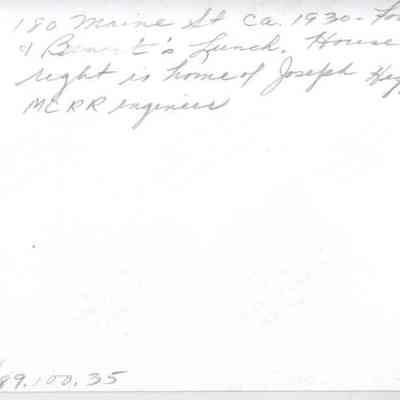 180 Maine St ca. 1930 -
& 's Lunch. House
right is home of Joseph
MCRR engineer
89.100.35